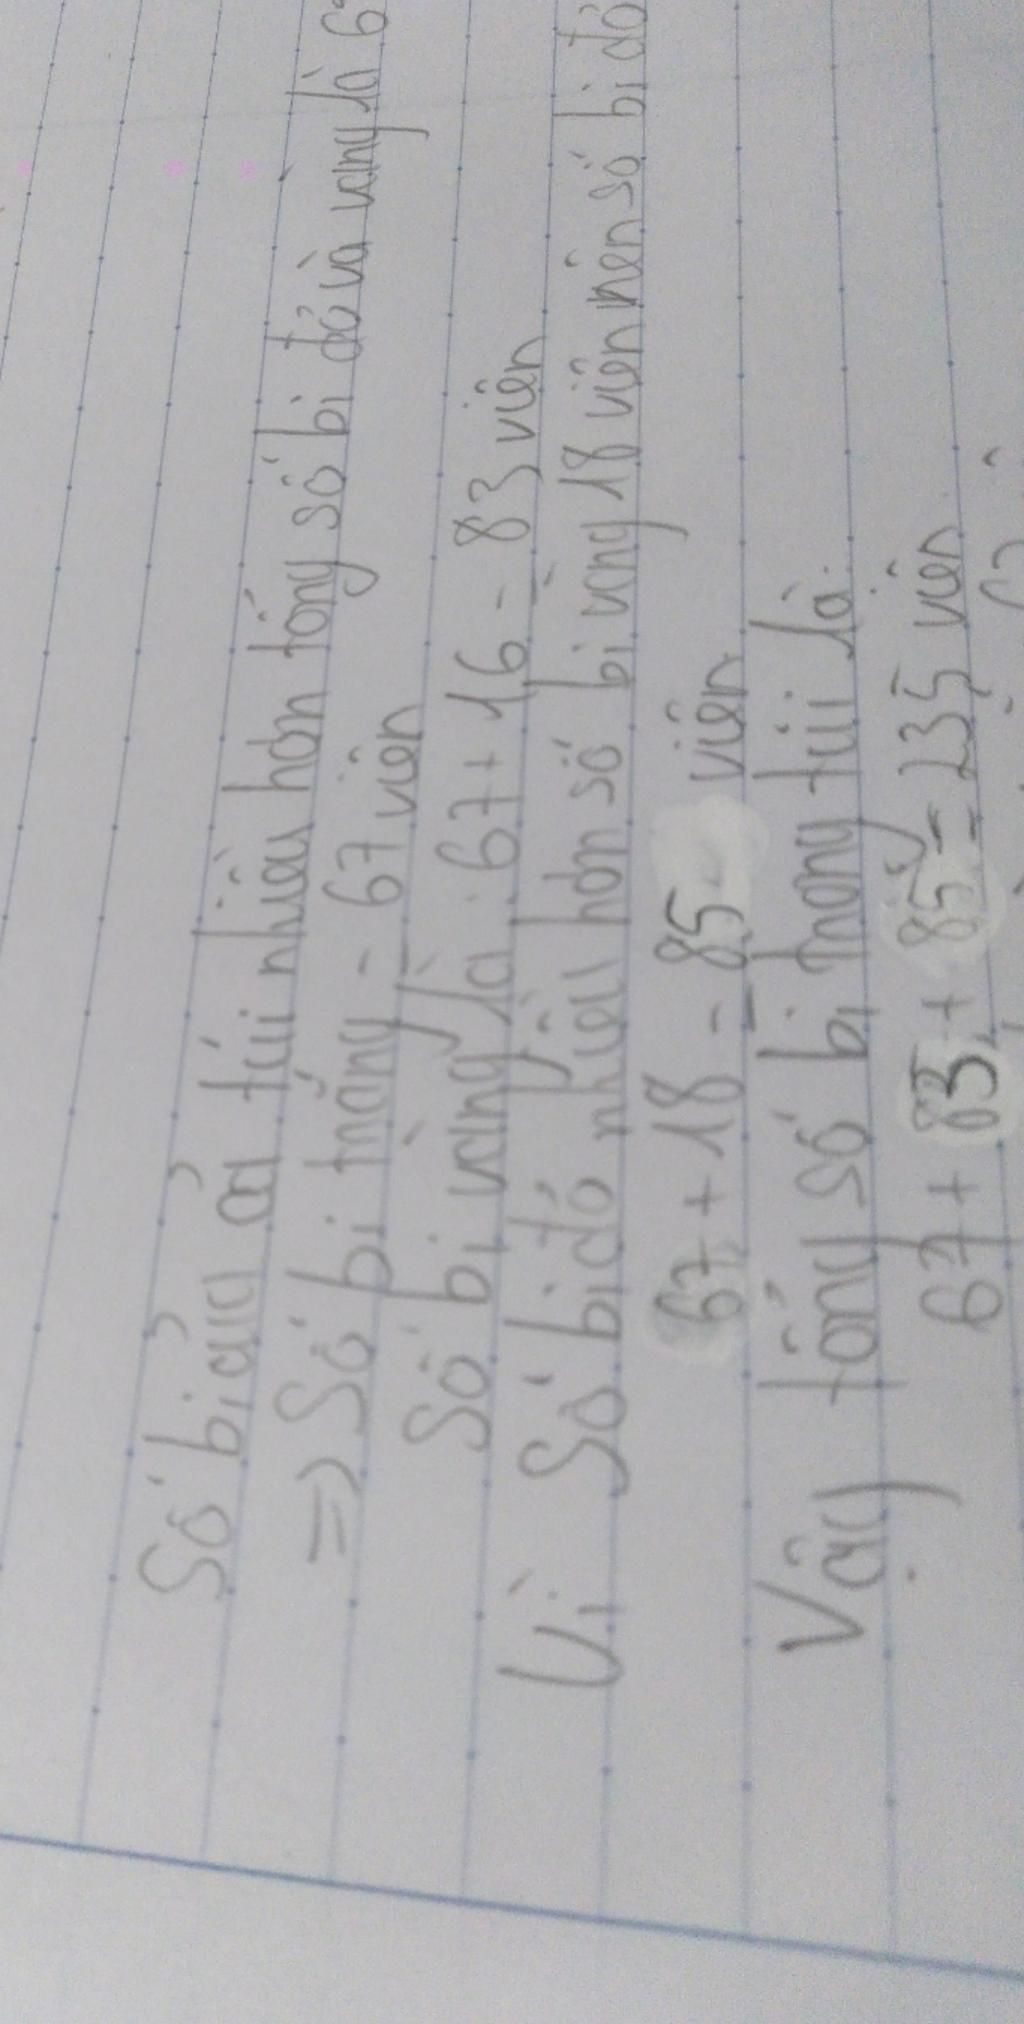 Số bi của cả túi nhiều hơn tổng số bi đỏ và vàng là 6
=> Số bi trắng = 67 viên
Số bi vàng là : 67 + 16 = 83 viên
Vì Số bi đỏ nhiều hơn số bi vàng 18 viên nên số bi đỏ
67 + 18 = 85 viên
Vậy tổng số bi trong túi là:
67 + 83 + 85 = 235 viên